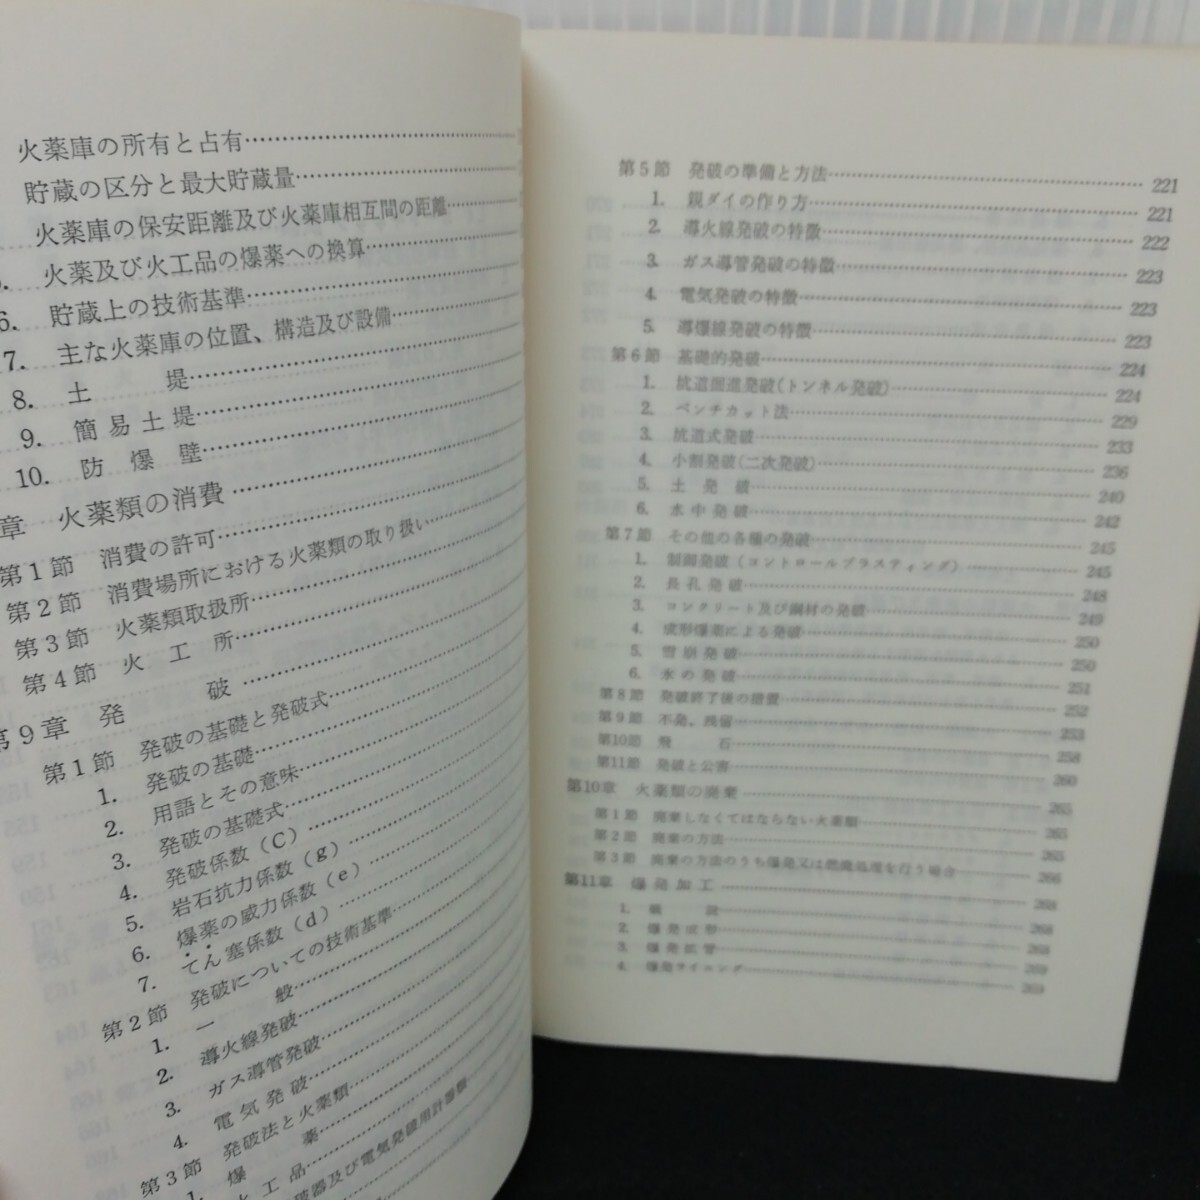 火薬庫の所有と占有
貯蔵の区分と最大貯蔵量
火薬庫の保安距離及び火薬庫相互間の距離
火薬及び火工品の爆薬への換算
6. 貯蔵上の技術基準
7. 主な火薬庫の位置、構造及び設備
8. 土堤
9. 簡易土堤
10. 防爆壁
章 火薬類の消費
第1節 消費の許可
第2節 消費場所における火薬類の取り扱い
第3節 火薬類取扱所
第4節 火工所
第9章 発破
第1節 発破の基礎と発破式
1. 発破の基礎
2. 用語とその意味
3. 発破の基礎式
4. 発破係数(C)
5. 岩石抗力係数(g)
6. 爆薬の威力係数(e)
7. てん塞係数(d)
第2節 発破についての技術基準
1. 一般
2. 導火線発破
3. ガス導管発破
4. 電気発破
第3節 発破法と火薬類
1. 爆薬
火工品
破器及び電気発破用計器類
第5節 発破の準備と方法 221
1. 親ダイの作り方 221
2. 導火線発破の特徴 222
3. ガス導管発破の特徴 223
4. 電気発破の特徴 223
5. 導爆線発破の特徴 223
第6節 基礎的発破 224
1. 坑道掘進発破(トンネル発破) 224
2. ベンチカット法 229
3. 坑道式発破 233
4. 小割発破(二次発破) 236
5. 土発破 240
6. 水中発破 242
第7節 その他の各種の発破 245
1. 制御発破(コントロールブラスティング) 245
2. 長孔発破 248
3. コンクリート及び鋼材の発破 249
4. 成形爆薬による発破 250
5. 雪崩発破 250
6. 氷の発破 251
第8節 発破終了後の措置 252
第9節 不発、残留 253
第10節 飛石 258
第11節 発破と公害 260
第10章 火薬類の廃棄 265
第1節 廃棄しなくてはならない火薬類 265
第2節 廃棄の方法 265
第3節 廃棄の方法のうち爆発又は燃焼処理を行う場合 266
第11章 爆発加工 268
1. 概説 268
2. 爆発成形 268
3. 爆発拡管 269
4. 爆発ライニング 269